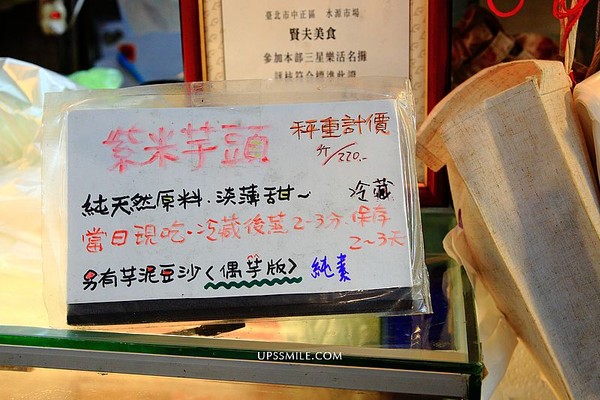 臺北市中正區 水源市場
賢夫美食
參加本部三星樂活名攤
評核符合標準此證
紫米芋頭 秤重計價
斤/220.-
純天然原料.淡薄甜~ 冷藏
當日現吃~冷藏後蒸2-3分.保存
2~3天
另有芋泥豆沙<偶芋版> 純素
UPSSMILE.COM